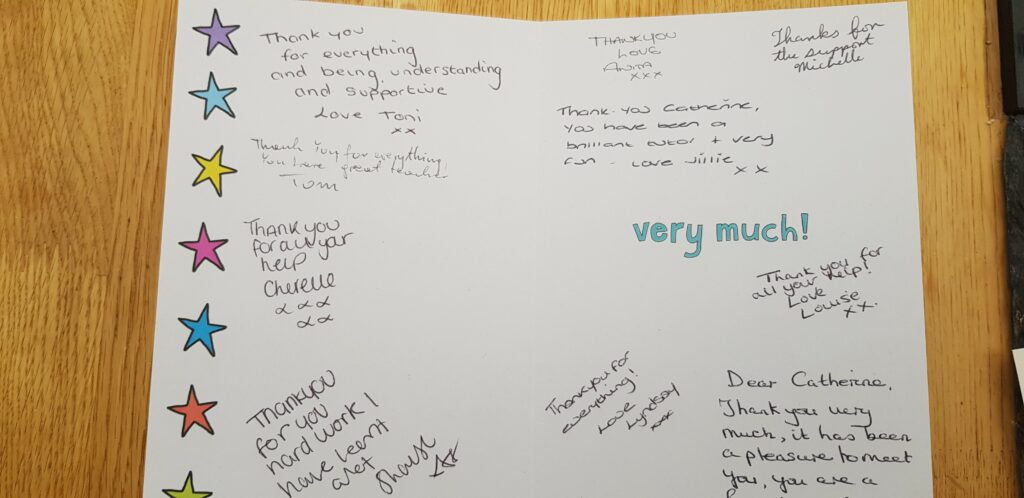 Thank you
for everything
and being understanding
and supportive
Love Toni
xx
Thank you for everything,
You were great teacher
Tom
Thank you
for all your
help
Cherelle
xxx
xx
Thankyou
for you
hard work I
have learnt
alot
THANKYOU
LOVE
ANITA
xxx
Thanks for
the support
Michelle
Thank-you Catherine,
you have been a
brilliant tutor + very
fun - Love Jillie
xx
very much!
Thank you for
all your help!
Love
Louise
xx.
Thankyou for
everything!
Love
Lyndsay
xxx
Dear Catherine,
Thank you very
much, it has been
a pleasure to meet
you, you are a